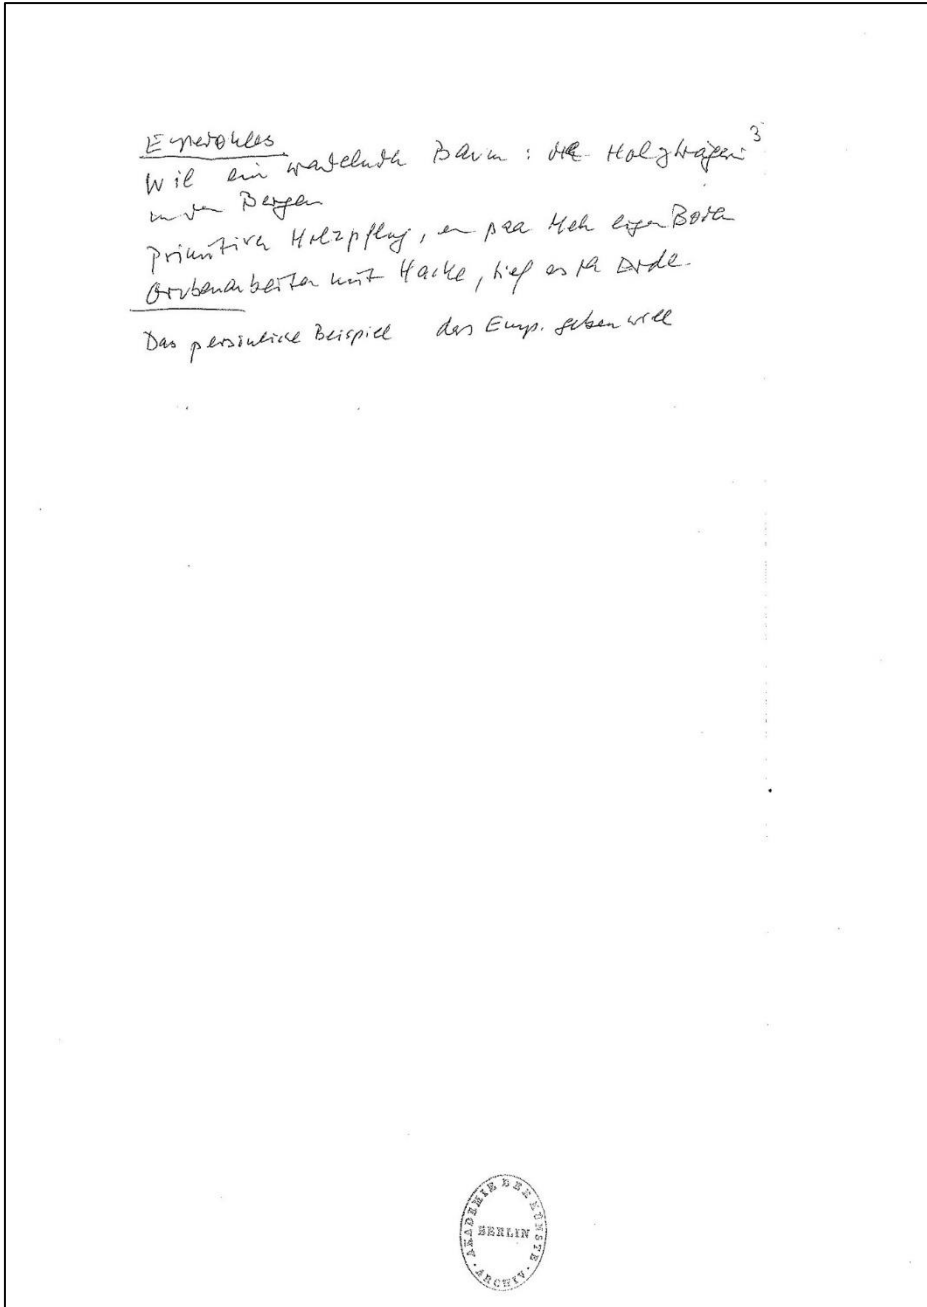 3
Empedokles
Wie ein wandelnder Baum: die Holzträgerin
in den Bergen
Primitiver Holzpflug, ein paar Meter eigen Boden
Grubenarbeiter mit Hacke, tief in der Erde.
Das persönliche Beispiel das Emp. geben will
AKADEMIE DER KÜNSTE
BERLIN
ARCHIV